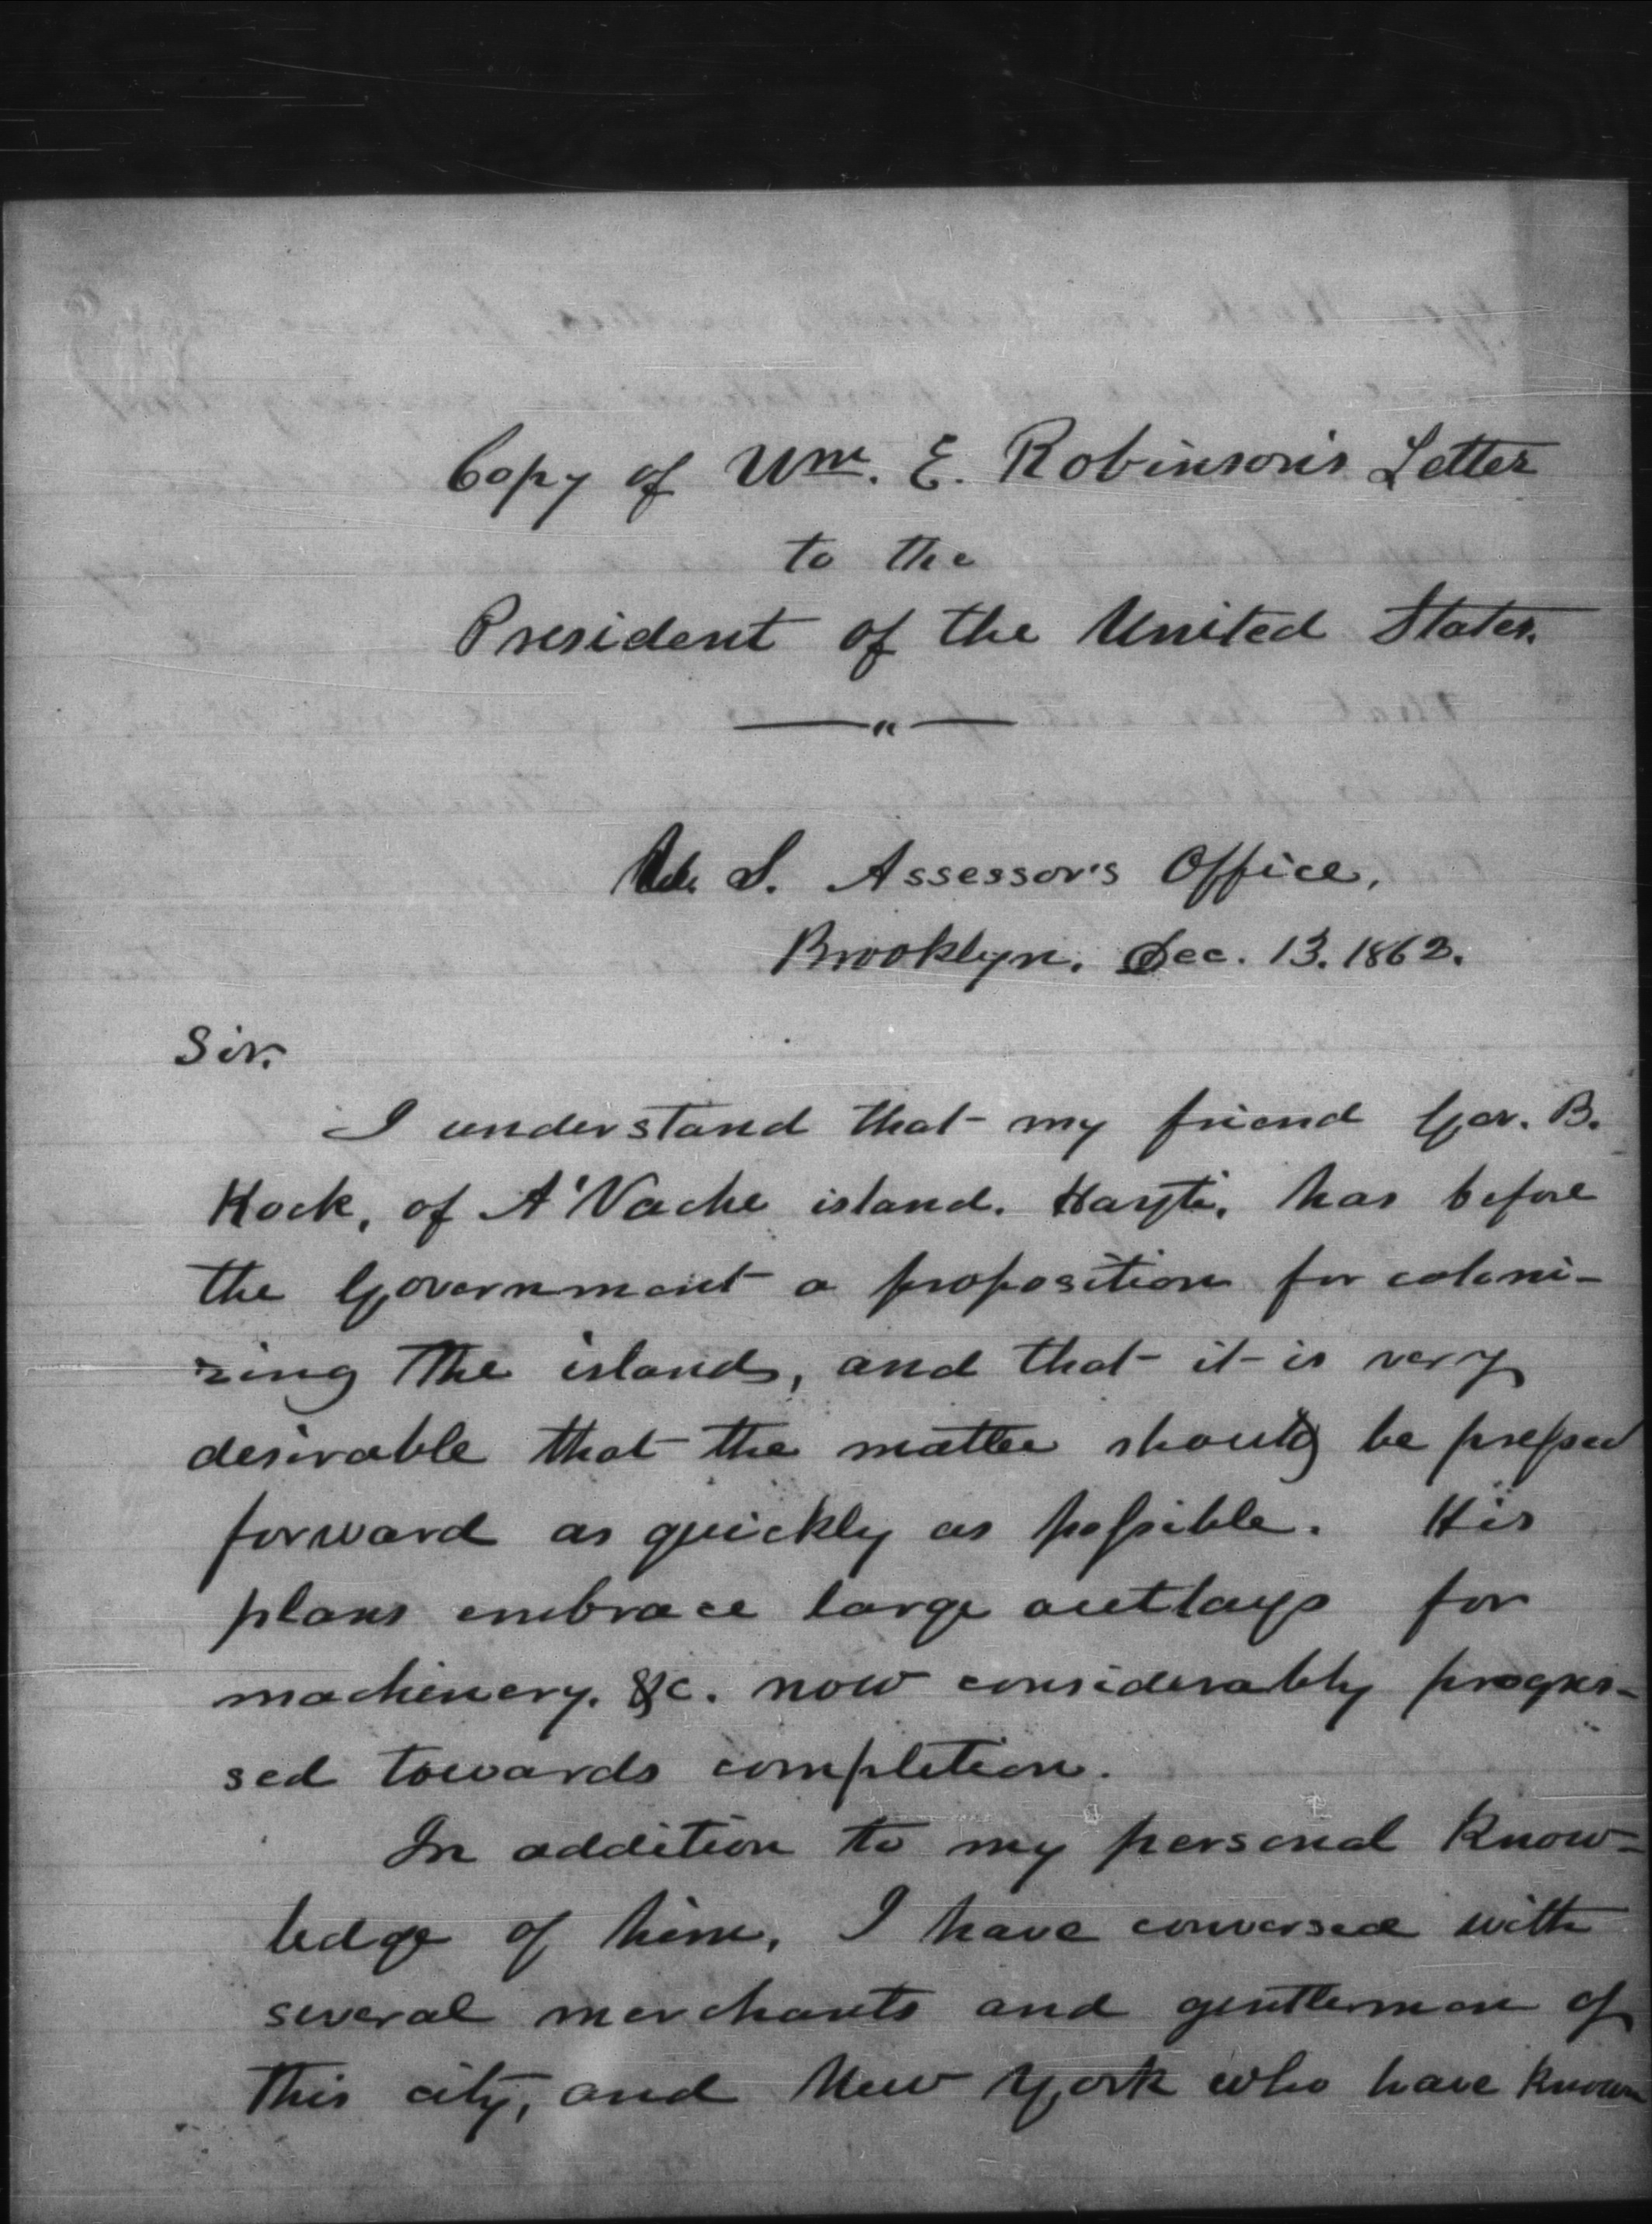 Copy of Wm. E. Robinson's Letter
to the
President of the United States.
U. S. Assessor's Office,
Brooklyn. Dec. 13. 1862.
Sir.
I understand that my friend Gov. B.
Kock, of A'Vache island. Hayti, has before
the Government a proposition for coloni-
zing the island, and that it is very
desirable that the matter should be pressed
forward as quickly as possible. His
plans embrace large outlays for
machinery. &c. now considerably progres-
sed towards completion.
In addition to my personal know-
ledge of him, I have conversed with
several merchants and gentlemen of
this city, and New York who have known